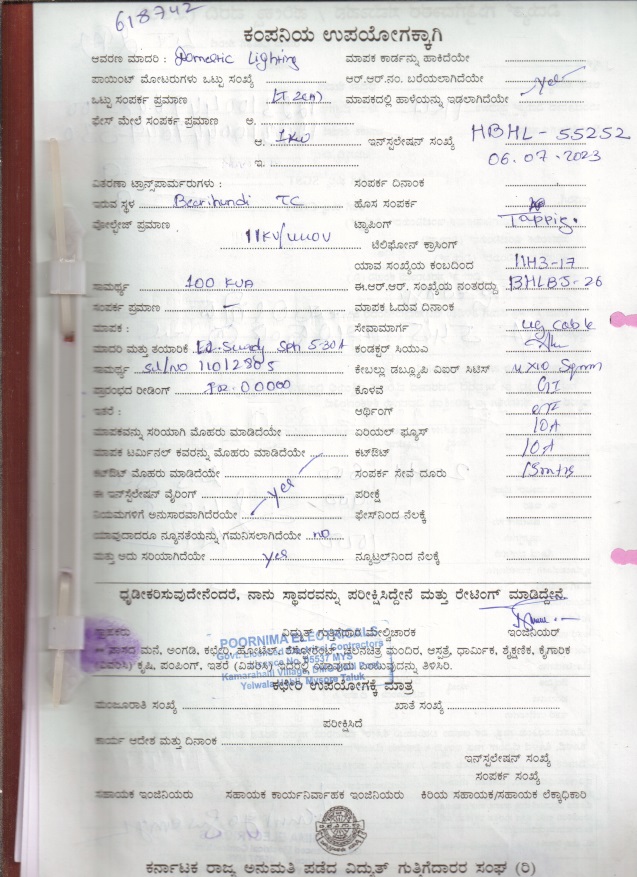 618742
ಕಂಪನಿಯ ಉಪಯೋಗಕ್ಕಾಗಿ
ಆವರಣ ಮಾದರಿ : Domestic Lighting ಮಾಪಕ ಕಾರ್ಡನ್ನು ಹಾಕಿದೆಯೇ
ಪಾಯಿಂಟ್ ಮೋಟರುಗಳು ಒಟ್ಟು ಸಂಖ್ಯೆ ಆರ್.ಆರ್.ನಂ. ಬರೆಯಲಾಗಿದೆಯೇ
ಒಟ್ಟು ಸಂಪರ್ಕ ಪ್ರಮಾಣ LT 2(A) ಮಾಪಕದಲ್ಲಿ ಹಾಳೆಯನ್ನು ಇಡಲಾಗಿದೆಯೇ yes
ಫೇಸ್ ಮೇಲೆ ಸಂಪರ್ಕ ಪ್ರಮಾಣ ಅ.
ಆ. 1KW ಇನ್‌ಸ್ಟಲೇಷನ್ ಸಂಖ್ಯೆ HBHL - 55252
ಇ. 06.07.2023
ವಿತರಣಾ ಟ್ರಾನ್ಸ್‌ಪಾರ್ಮರುಗಳು : ಸಂಪರ್ಕ ದಿನಾಂಕ
ಇರುವ ಸ್ಥಳ Beerihundi TC ಹೊಸ ಸಂಪರ್ಕ
ವೋಲ್ಟೇಜ್ ಪ್ರಮಾಣ ಟ್ಯಾಪಿಂಗ್ Tapping.
11KV/440V ಟೆಲಿಫೋನ್ ಕ್ರಾಸಿಂಗ್
ಯಾವ ಸಂಖ್ಯೆಯ ಕಂಬದಿಂದ 11H3-17
ಸಾಮರ್ಥ್ಯ 100 KVA ಈ.ಆರ್.ಆರ್. ಸಂಖ್ಯೆಯ ನಂತರದ್ದು BHLBJ-26
ಸಂಪರ್ಕ ಪ್ರಮಾಣ - ಮಾಪಕ ಓದುವ ದಿನಾಂಕ
ಮಾಪಕ : ಸೇವಾಮಾರ್ಗ ug cable
ಮಾದರಿ ಮತ್ತು ತಯಾರಿಕೆ 5-30A ಕಂಡಕ್ಟರ್ ಸಿಯುಎ
ಸಾಮರ್ಥ್ಯ Sl/NO 11012805 ಕೇಬಲ್ಲು ಡಬ್ಲ್ಯೂಪಿ ಎಐರ್ ಸಿಟಿಸ್ 4X10 Sqmm
ಪ್ರಾರಂಭದ ರೀಡಿಂಗ್ IR-00000 ಕೊಳವೆ
ಇತರೆ : ಆರ್ಥಿಂಗ್
ಮಾಪಕವನ್ನು ಸರಿಯಾಗಿ ಮೊಹರು ಮಾಡಿದೆಯೇ ಏರಿಯಲ್ ಫ್ಯೂಸ್ 10A
ಮಾಪಕ ಟರ್ಮಿನಲ್ ಕವರನ್ನು ಮೊಹರು ಮಾಡಿದೆಯೇ ಕಟ್‌ಔಟ್ 10A
ಕಟ್‌ಔಟ್ ಮೊಹರು ಮಾಡಿದೆಯೇ ಸಂಪರ್ಕ ಸೇವೆ ದೂರು 15mtrs
ಈ ಇನ್‌ಸ್ಟಲೇಷನ್ ವೈರಿಂಗ್ yes ಪರೀಕ್ಷೆ
ನಿಯಮಗಳಿಗೆ ಅನುಸಾರವಾಗಿದೆರಯೇ ಫೇಸ್‌ನಿಂದ ನೆಲಕ್ಕೆ
ಯಾವುದಾದರೂ ನ್ಯೂನತೆಯನ್ನು ಗಮನಿಸಲಾಗಿದೆಯೇ no
ಮತ್ತು ಅದು ಸರಿಯಾಗಿದೆಯೇ yes ನ್ಯೂಟ್ರಲ್‌ನಿಂದ ನೆಲಕ್ಕೆ
ಧೃಡೀಕರಿಸುವುದೇನೆಂದರೆ, ನಾನು ಸ್ಥಾವರವನ್ನು ಪರೀಕ್ಷಿಸಿದ್ದೇನೆ ಮತ್ತು ರೇಟಿಂಗ್ ಮಾಡಿದ್ದೇನೆ.
ಗ್ರಾಹಕರು ವಿದ್ಯುತ್ ಗುತ್ತಿಗೆದಾರ ಮೇಲ್ವಿಚಾರಕ ಇಂಜಿನಿಯರ್
POORNIMA ELECTRICALS
Govt. Licenced Electrical Contractors
Kamarahalli Village,
Yelwala Hobli, Mysore Taluk
ವಾಸದ ಮನೆ, ಅಂಗಡಿ, ಕಛೇರಿ, ಹೋಟೆಲ್, ಚಲನಚಿತ್ರ ಮಂದಿರ, ಆಸ್ಪತ್ರೆ, ಧಾರ್ಮಿಕ, ಶೈಕ್ಷಣಿಕ, ಕೈಗಾರಿಕೆ
(ವಿವರಿಸಿ) ಕೃಷಿ, ಪಂಪಿಂಗ್, ಇತರೆ (ವಿವರಿಸಿ) ಇದರಲ್ಲಿ ಯಾವುದು ಎಂಬುವುದನ್ನು ತಿಳಿಸಿರಿ.
ಕಛೇರಿ ಉಪಯೋಗಕ್ಕೆ ಮಾತ್ರ
ಮಂಜೂರಾತಿ ಸಂಖ್ಯೆ ಖಾತೆ ಸಂಖ್ಯೆ
ಪರೀಕ್ಷಿಸಿದೆ
ಕಾರ್ಯ ಆದೇಶ ಮತ್ತು ದಿನಾಂಕ
ಇನ್‌ಸ್ಟಲೇಷನ್ ಸಂಖ್ಯೆ
ಸಂಪರ್ಕ ಸಂಖ್ಯೆ
ಸಹಾಯಕ ಇಂಜಿನಿಯರು ಸಹಾಯಕ ಕಾರ್ಯನಿರ್ವಾಹಕ ಇಂಜಿನಿಯರು ಕಿರಿಯ ಸಹಾಯಕ/ಸಹಾಯಕ ಲೆಕ್ಕಾಧಿಕಾರಿ
ಕರ್ನಾಟಕ ರಾಜ್ಯ ಅನುಮತಿ ಪಡೆದ ವಿದ್ಯುತ್ ಗುತ್ತಿಗೆದಾರರ ಸಂಘ (ರಿ)